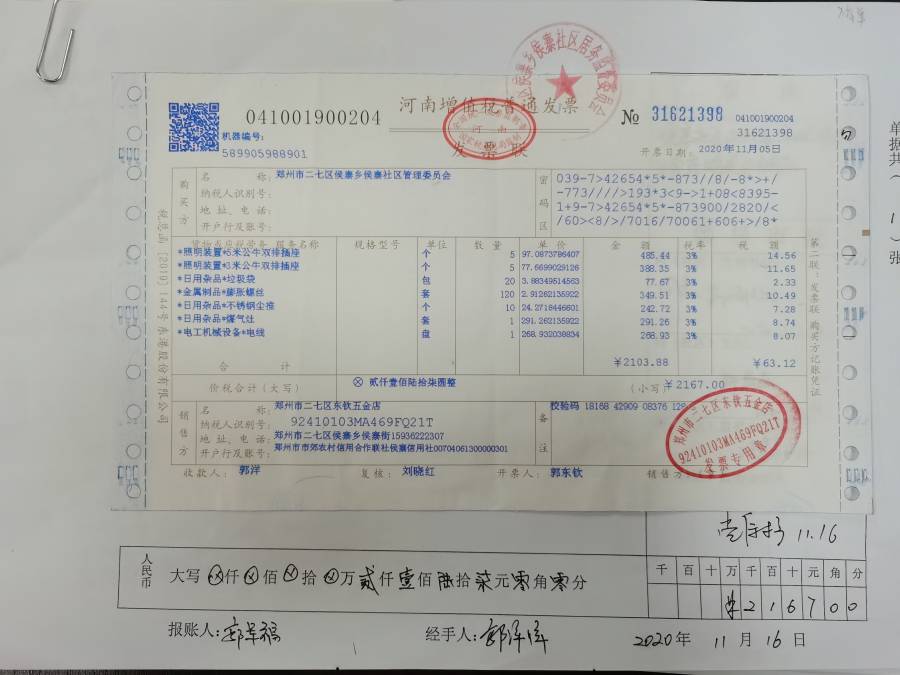 041001900204
河南增值税普通发票
发票联
№ 31621398
041001900204
31621398
机器编号:
589905988901
开票日期: 2020年11月05日
购买方
名 称: 郑州市二七区侯寨乡侯寨社区管理委员会
纳税人识别号:
地 址、电 话:
开户行及账号:
密码区
039-7>42654*5*-873//8/-8*>+/
-773////>193*3<9->1+08<8395-
1+9-7>42654*5*-873900/2820/<
/60><8/>/7016/70061+606+>/8*
货物或应税劳务、服务名称 规格型号 单位 数 量 单 价 金 额 税率 税 额
*照明装置*5米公牛双排插座 个 5 97.0873786407 485.44 3% 14.56
*照明装置*3米公牛双排插座 个 5 77.6699029126 388.35 3% 11.65
*日用杂品*垃圾袋 包 20 3.88349514563 77.67 3% 2.33
*金属制品*膨胀螺丝 套 120 2.91262135922 349.51 3% 10.49
*日用杂品*不锈钢尘推 个 10 24.2718446601 242.72 3% 7.28
*日用杂品*煤气灶 套 1 291.262135922 291.26 3% 8.74
*电工机械设备*电线 盘 1 268.932038834 268.93 3% 8.07
合 计 ¥2103.88 ¥63.12
价税合计(大写) ⊗ 贰仟壹佰陆拾柒圆整 (小写) ¥2167.00
销售方
名 称: 郑州市二七区东钦五金店
纳税人识别号: 92410103MA469FQ21T
地 址、电 话: 郑州市二七区侯寨乡侯寨街15936222307
开户行及账号: 郑州市市郊农村信用合作联社侯寨信用社00704061300000301
备注
校验码 18168 42909 08376 128
郑州市二七区东钦五金店
92410103MA469FQ21T
发票专用章
收款人: 郭洋 复核: 刘晓红 开票人: 郭东钦 销售方:
第二联:发票联 购买方记账凭证
税总函[2019]144号东港股份有限公司
单据共(1)张
11.16
人民币
大写 ⊗仟⊗佰⊗拾⊗万贰仟壹佰陆拾柒元零角零分
千 百 十 万 千 百 十 元 角 分
¥ 2 1 6 7 0 0
报账人:
经手人:
2020年 11月 16日